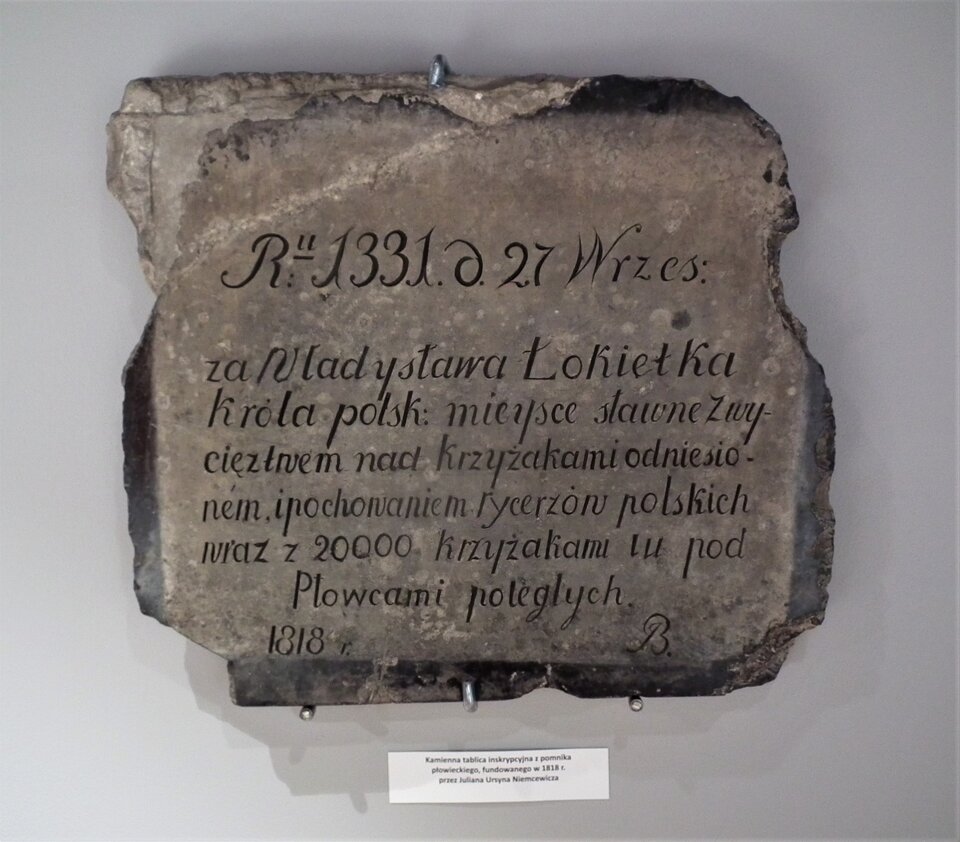 R:ᵘ 1331. d. 27 Wrzes:
za Władysława Łokiełka
króla polsk: mieysce sławne Zwy-
cięztwem nad krzyżakami odniesio-
ném, i pochowaniem rycerzów polskich
wraz z 20000 krzyżakami tu pod
Płowcami poległych.
1818 r. B.
Kamienna tablica inskrypcyjna z pomnika
płowieckiego, fundowanego w 1818 r.
przez Juliana Ursyna Niemcewicza